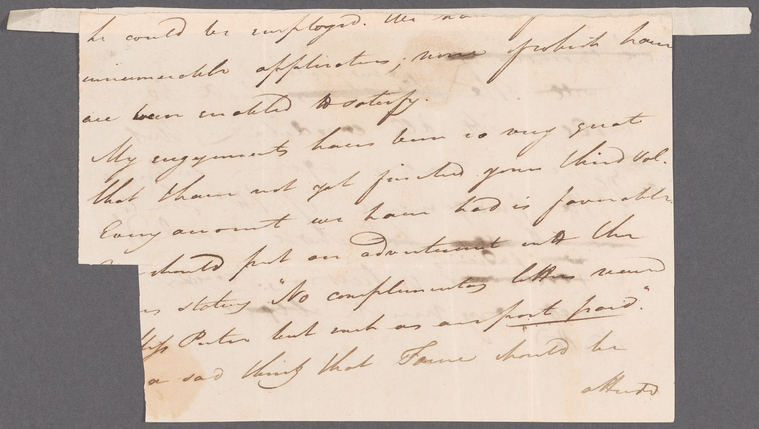 he could be employed. We have
innumerable applicators, none of which have
we been enabled to satisfy.
My engagements have been so very great
that I have not yet finished your third Vol.
Every account we have had is favorable.
should put an advertisement in the
stating "No complimentary letters received
Miss Porter but such as are post paid."
a sad thing that Fame should be
attended